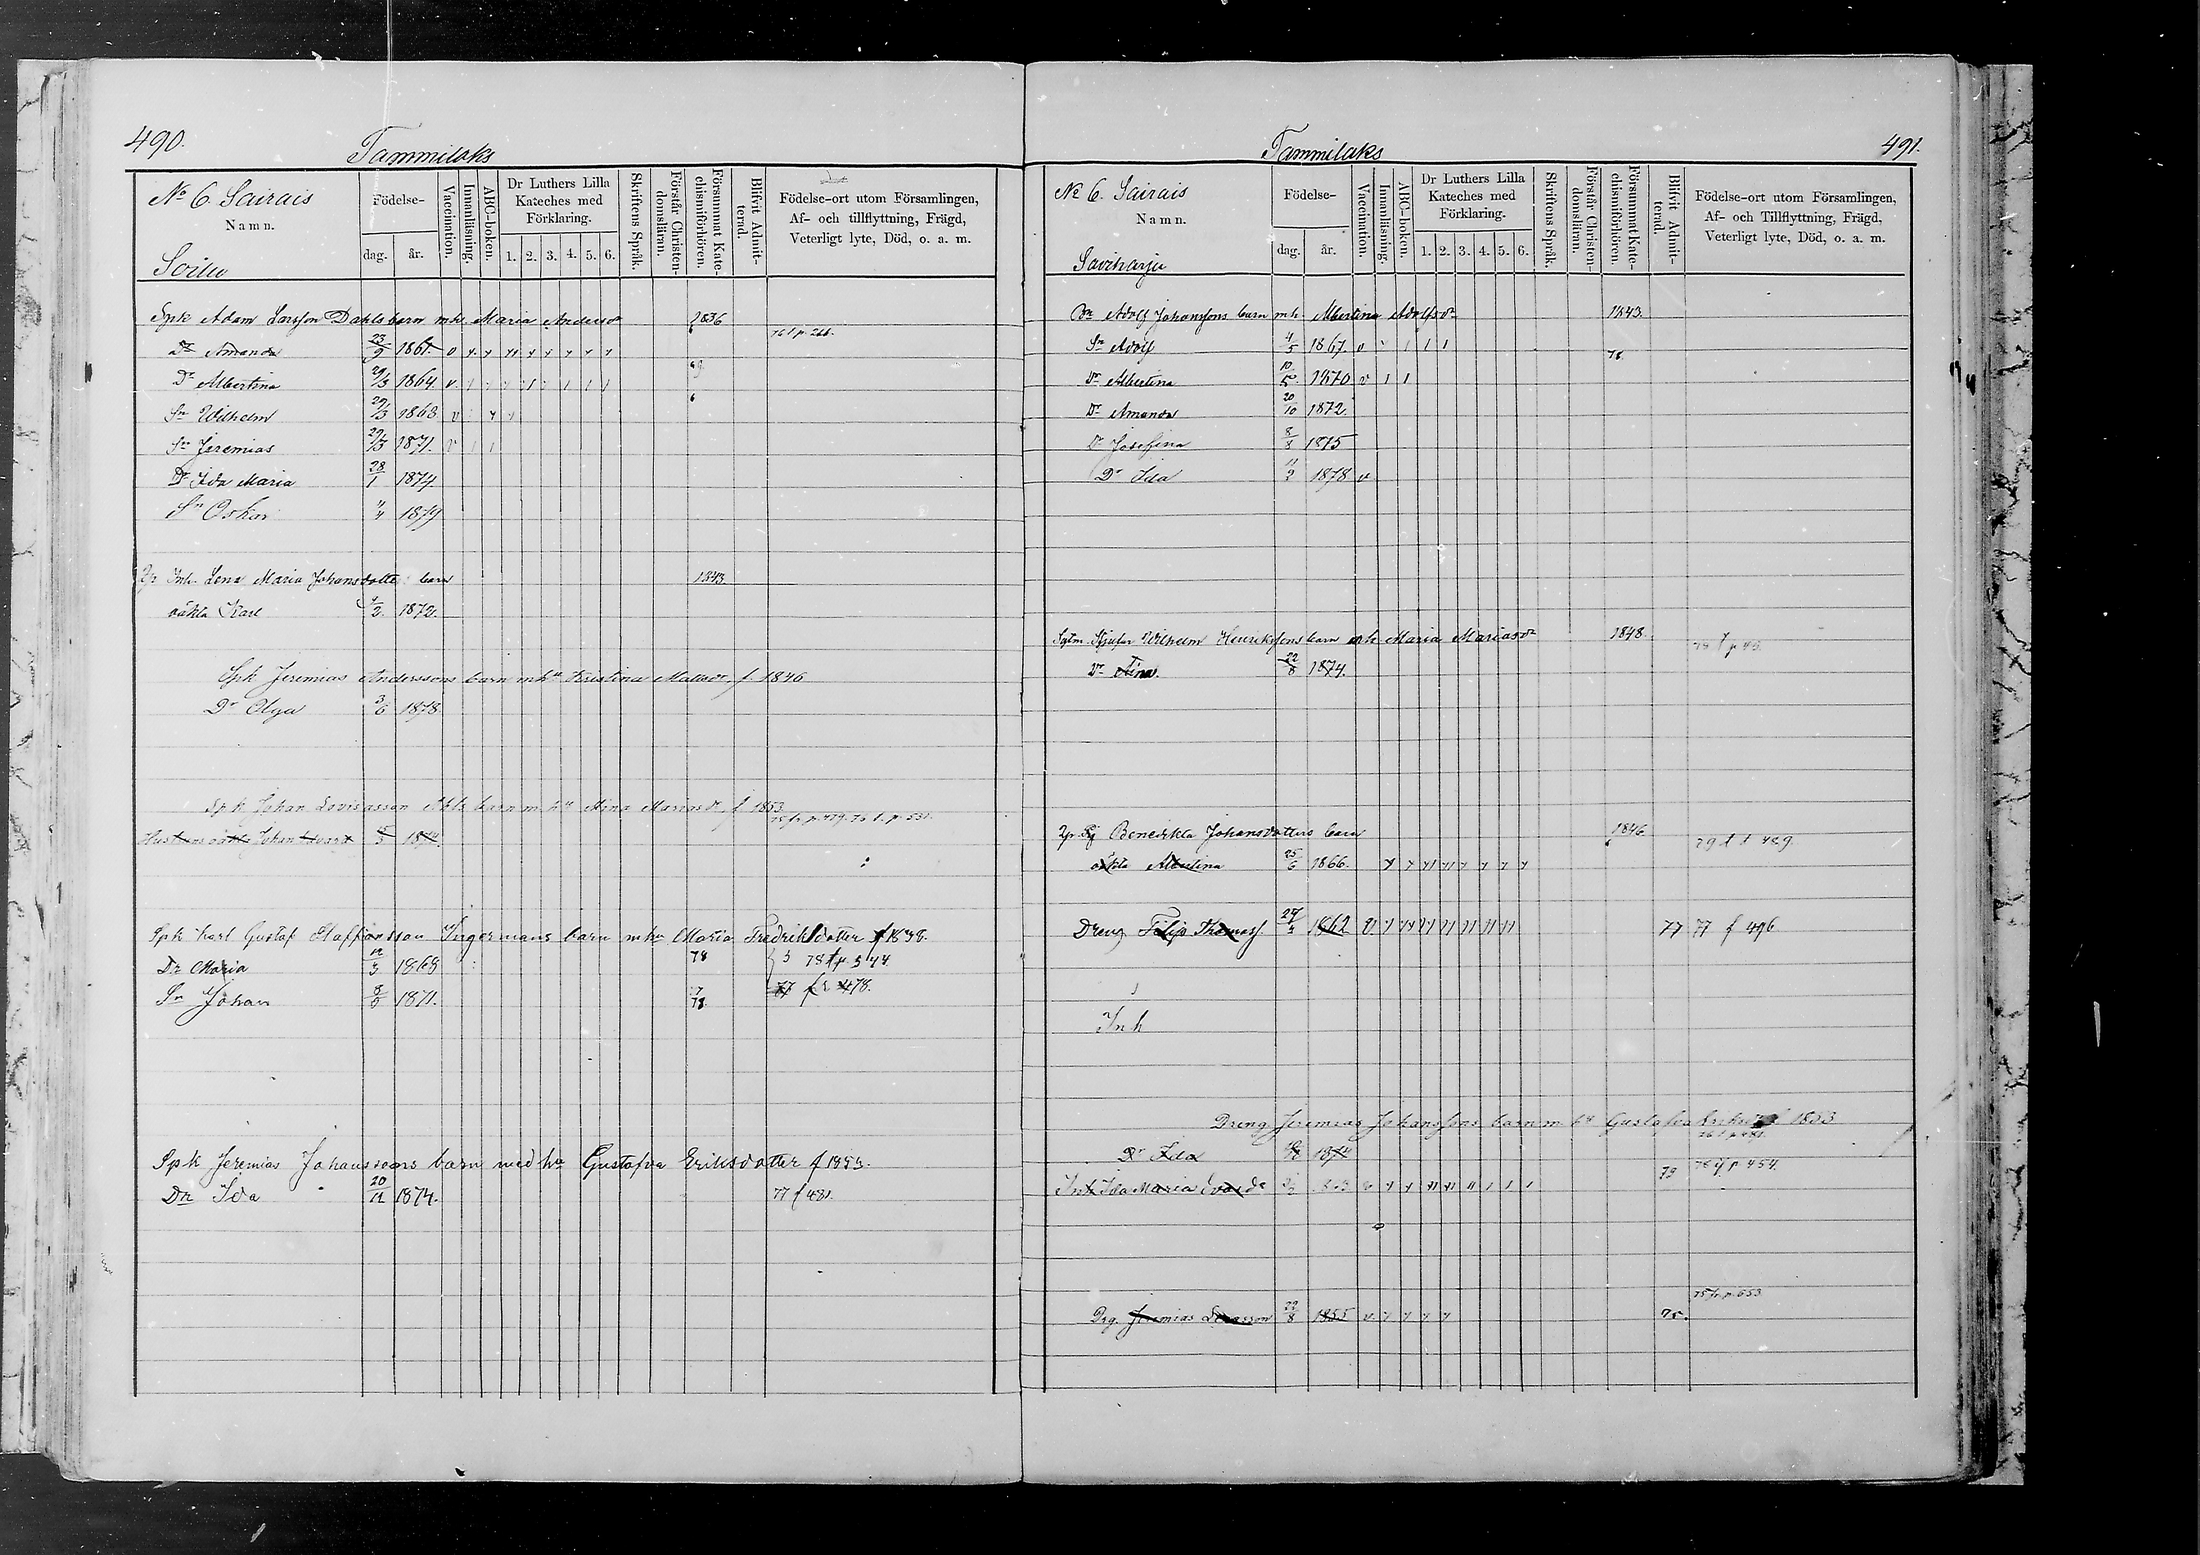 490.
Tammilaks
No 6. Sairais
Namn.
Födelse-
dag. år.
Vaccination.
Innanläsning.
ABC-boken.
Dr Luthers Lilla Kateches med Förklaring.
1. 2. 3. 4. 5. 6.
Skriftens Språk.
Förstår Christendomsläran.
Försummat Katechismiförhören.
Blifvit Admitterad.
Födelse-ort utom Församlingen, Af- och tillflyttning, Frägd, Veterligt lyte, Död, o. a. m.
Spk Adam Larsson Dahls barn mh. Maria Andersdr 1836
Dr Amanda 23/9 1861. 76 t p. 266.
Dr Albertina 29/3 1864
Sn Wilhelm 29/3 1868
Sn Jeremias 29/3 1871.
Dr Ida Maria 28/1 1874
Sn Oskar 1879
Inh. Lena Maria Johansdotters barn 1843.
oäkta Karl 1872.
Spk Jeremias Anderssons barn mhu Kristina Mattsdr. f 1846
Dr Olga 3/6 1878
Spk Johan Lovisasson barn m hu Mina Mariasdr f 1853
Hustruns oäkta Johan Edvard 1874.
Spk Karl Gustaf Staffansson Ingermans barn mhu Maria Fredriksdotter f 1838.
Dr Maria 12/3 1868 78
Sn Johan 1871. 77 fr 478.
Spk Jeremias Johanssons barn med hu Gustafva Eriksdotter f 1853.
Dr Ida 20/12 1874. 77 f 481.
491.
Tammilaks
No 6. Sairais
Namn.
Saviharju
Födelse-
dag. år.
Vaccination.
Innanläsning.
ABC-boken.
Dr Luthers Lilla Kateches med Förklaring.
1. 2. 3. 4. 5. 6.
Skriftens Språk.
Förstår Christendomsläran.
Försummat Katechismiförhören.
Blifvit Admitterad.
Födelse-ort utom Församlingen, Af- och Tillflyttning, Frägd, Veterligt lyte, Död, o. a. m.
Adolf Johanssons barn mh. Albertina Adolfsdr 1843.
Sn Adolf 4/5 1867.
Dr Albertina 10/5. 1870
Dr Amanda 20/10 1872.
Dr Josefina 8/8 1875
Dr Ida 11/2 1878
Wilhelm Henrikssons barn mh Maria Mariasdr 1848
Dr Tina 22/8 1874.
Benedikta Johansdotters barn 1846
oäkta Albertina 25/6 1866. 79 t s 489.
Dreng Filip Thomass. 1862 77 77 f 496
Inh
Dreng Jeremias Johanssons barn m hu Gustafva f 1853
Dr Ida 1874
Inh Ida Maria 79 78 p 454.
Drg. Jeremias 22/8 1855 75.
75 fr p. 653.